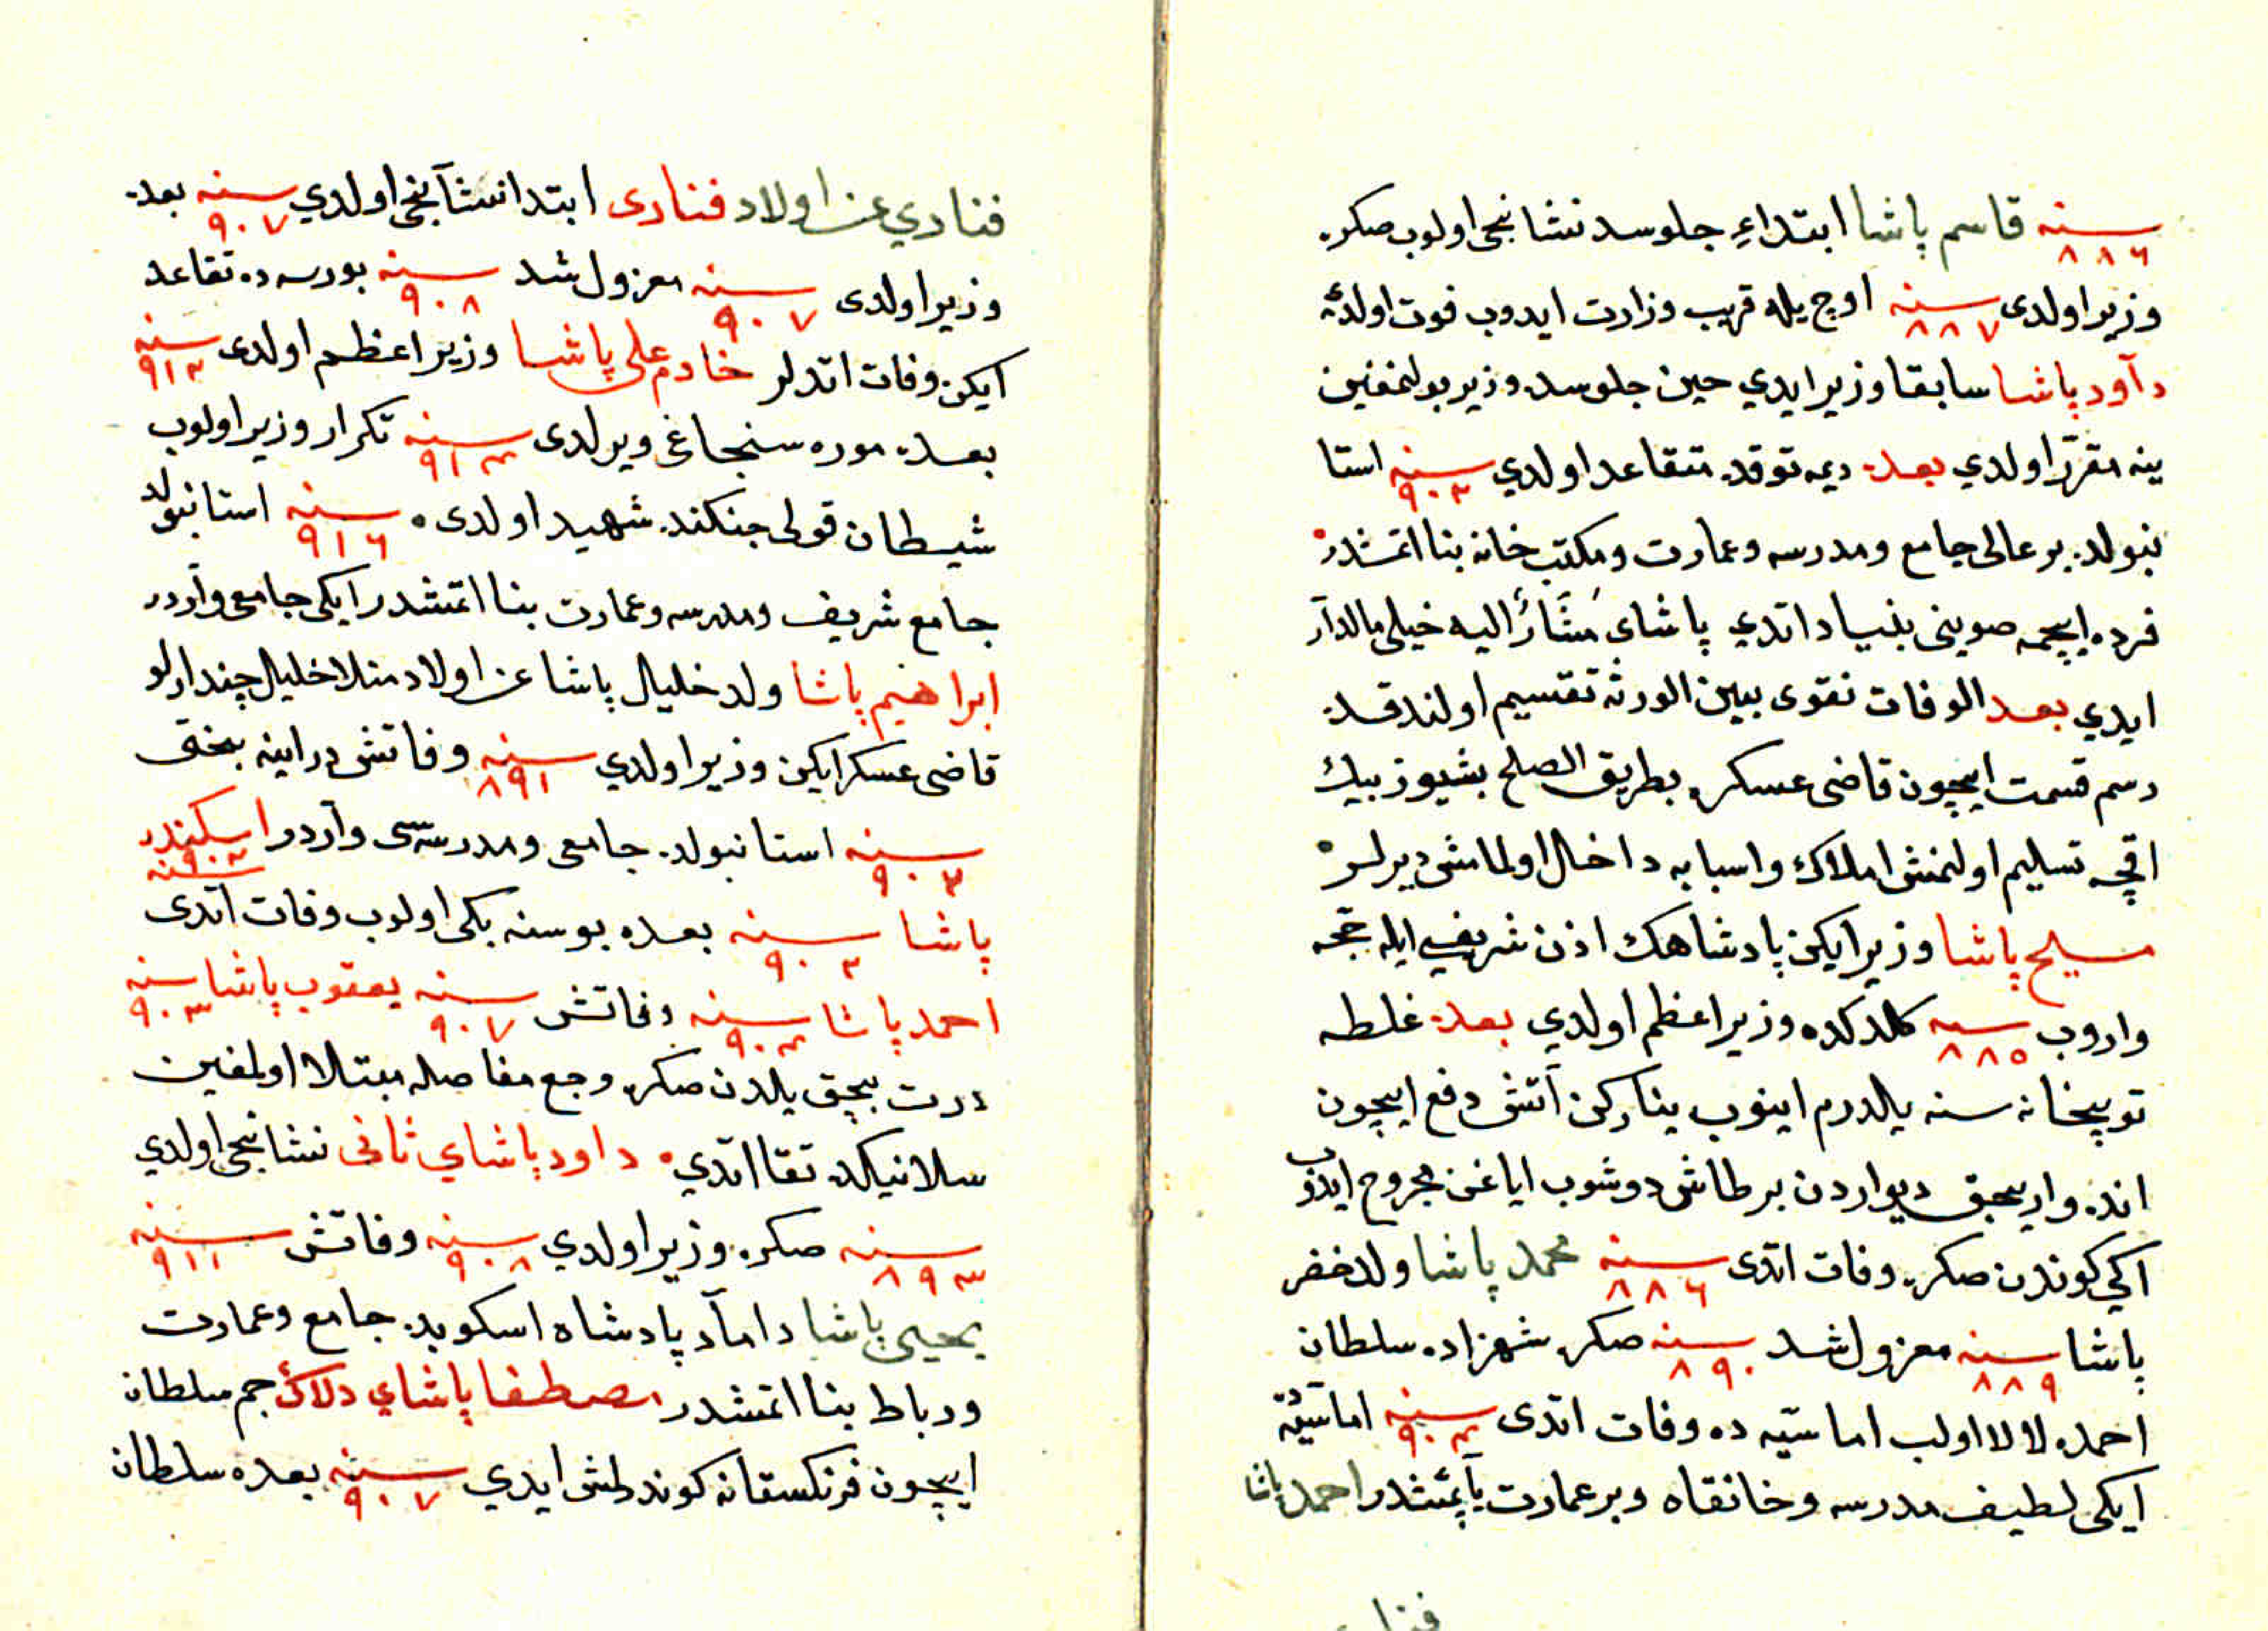 سنه ٨٨٦ قاسم پاشا ابتداءِ جلوسده نشانجی اولوب صكره
وزیر اولدی سنه ٨٨٧ اوچ ییله قریب وزارت ایدوب فوت اولدی
دآود پاشا سابقا وزیر ایدي حین جلوسده وزیر بولنمغین
ینه مقرّر اولدي بعده دیمه توقده متقاعد اولدي سنه ٩٠٢ استا
نبولده بر عالی جامع ومدرسه وعمارت ومكتب خانه بنا اتمشدر
قرده ایچمه صوینی بنیاد اتدي پاشای مُشَارٌ الیه خیلی مالدآر
ایدي بعد الوفات نقوی بین الورثه تقسیم اولندقده
رسم قسمت ایچون قاضی عسكره بطریق الصلح بشیوز بیك
اقچه تسلیم اولنمش املاك واسبابه داخال اولمامش دیرلر
مسیح پاشا وزیر ایكن پادشاهك اذن شریفی ایله حجّه
واروب سنه ٨٨٥ كلدكده وزیر اعظم اولدي بعده غلطه
توپخانه سنه یلدرم اینوب یناركن آتش دفع ایچون
انده واریجق دیواردن بر طاش دوشوب ایاغن مجروح ایدوب
اكي كوندن صكره وفات اتدی سنه ٨٨٦ محمد پاشا ولد خضر
پاشا سنه ٨٨٩ معزول شد سنه ٨٩٠ صكره شهزاده سلطان
احمده لالا اولب اماسیّه ده وفات اتدی سنه ٩٠٤ اماسیّه ده
ایكی لطیف مدرسه وخانقاه وبر عمارت یآپمشدر احمد پاشا
فنا
فنادي عن اولاد فنادی ابتدا نشآنجی اولدي سنه ٩٠٧ بعده
وزیر اولدی سنه ٩٠٧ معزول شد سنه ٩٠٨ بورسه ده تقاعد
ایكن وفات اتدلر خادم علی پاشا وزیر اعظم اولدی سنه ٩١٢
بعده موره سنجاغی ویرلدی سنه ٩١٤ تكرار وزیر اولوب
شیطان قولی جنكنده شهید اولدی سنه ٩١٦ استانبولده
جامع شریف ومدرسه وعمارت بنا اتمشدر ایكی جامعی وآردر
ابراهیم پاشا ولد خلیل پاشا عن اولاد منلا خلیل چندارلو
قاضی عسكر ایكن وزیر اولدي سنه ٨٩١ وفاتش در اینه بختی
سنه ٩٠٣ استانبولده جامعی ومدرسه‌سی وآردر اسكندر
پاشا سنه ٩٠٢ سنه ٩٠٢ بعده بوسنه بكی اولوب وفات اتدی
احمد پاشا سنه ٩٠٤ وفاتش سنه ٩٠٧ یعقوب پاشا سنه ٩٠٣
درت بچق یلدن صكره وجع مفاصله مبتلا اولمغین
سلانیكده تقا اتدي داود پاشاي ثانی نشانجی اولدي
سنه ٨٩٣ صكره وزیر اولدي سنه ٩٠٨ وفاتش سنه ٩١١
یحیی پاشا دامآد پادشاه اسكوبده جامع وعمارت
ورباط بنا اتمشدر مصطفا پاشاي دلاك جم سلطان
ایچون فرنكستانه كوندلمش ایدي سنه ٩٠٧ بعده سلطان